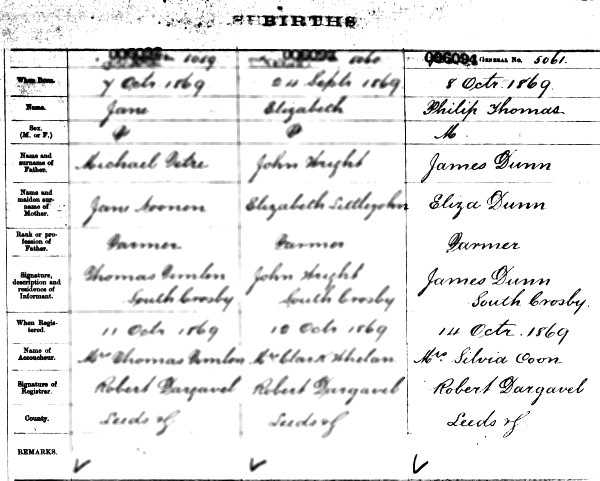 BIRTHS
006094 GENERAL No. 5061
When Born. 7 Octr 1869 24 Septr 1869 8 Octr. 1869
Name. Jane Elizabeth Philip Thomas
Sex. (M. or F.) F F M
Name and surname of Father. Michael John Wright James Dunn
Name and maiden surname of Mother. Jane Noonen Elizabeth Littlejohn Eliza Dunn
Rank or profession of Father. Farmer Farmer Farmer
Signature, description and residence of Informant. Thomas John Wright James Dunn
South Crosby South Crosby South Crosby.
When Registered. 11 Octr 1869 10 Octr 1869 14 Octr. 1869
Name of Accoucheur. Mrs Thomas Mrs Clark Whelan Mrs. Silvia Coon
Signature of Registrar. Robert Dargavel Robert Dargavel Robert Dargavel
County. Leeds Leeds Leeds
REMARKS.